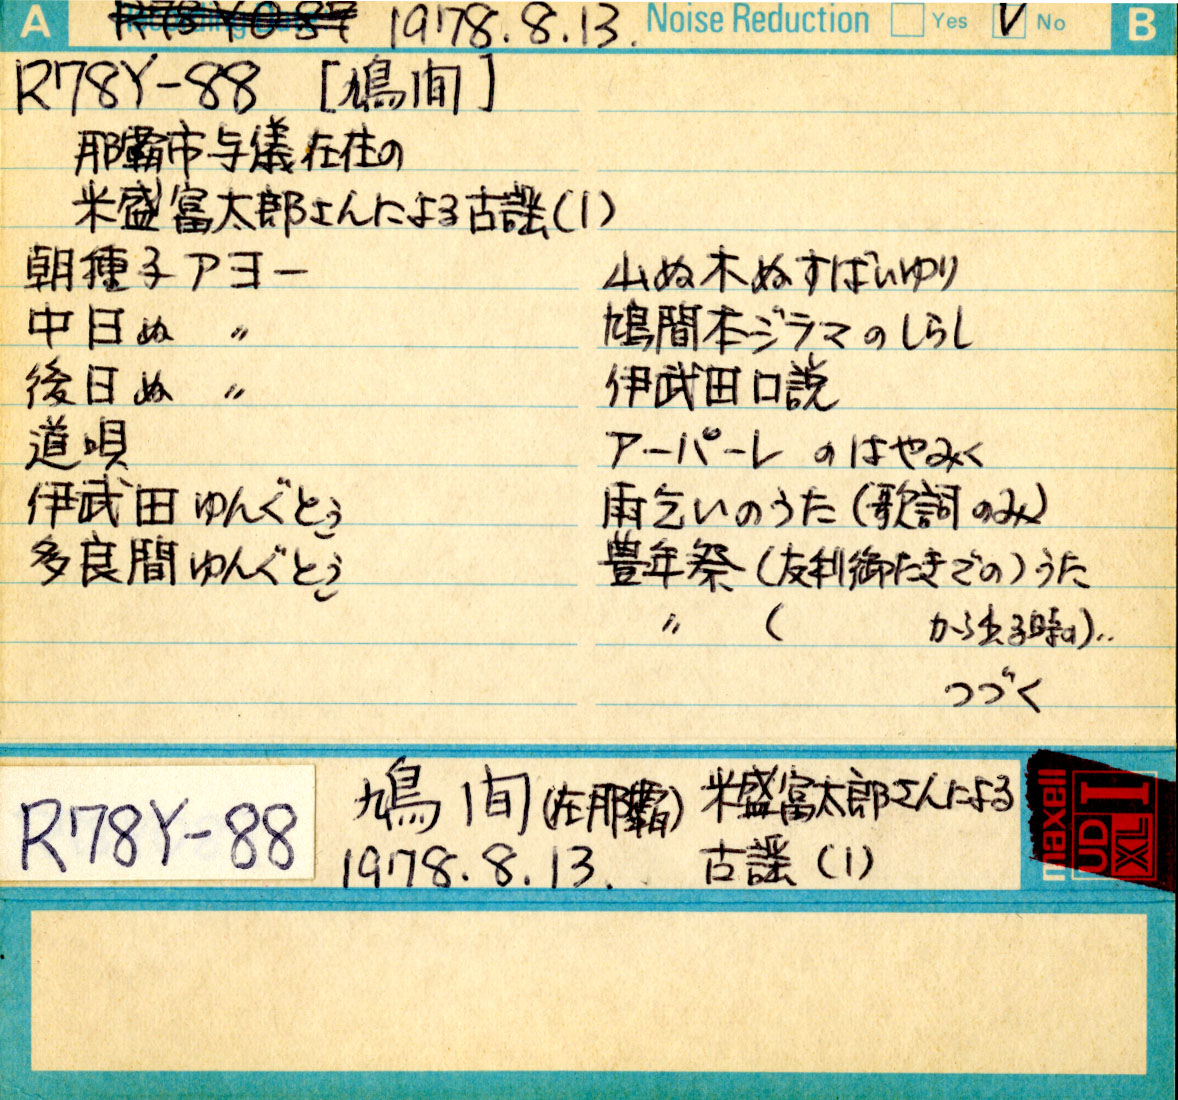 A R78Y0-87 1978.8.13. Noise Reduction Yes V No B
R78Y-88 [鳩間]
那覇市与儀在住の
米盛富太郎さんによる古謡(1)
朝種子アヨー
中日ぬ 〃
後日ぬ 〃
道唄
伊武田ゆんぐとぅ
多良間ゆんぐとぅ
山ぬ木ぬすばいゆり
鳩間本ジラマのしらし
伊武田口説
アーパーレのはやみく
雨乞いのうた(歌詞のみ)
豊年祭(友利御たきでの)うた
〃 ( から出る時の)〃
つづく
R78Y-88
鳩間(在那覇) 米盛富太郎さんによる
1978.8.13. 古謡(1)
maxell
UD
XL I